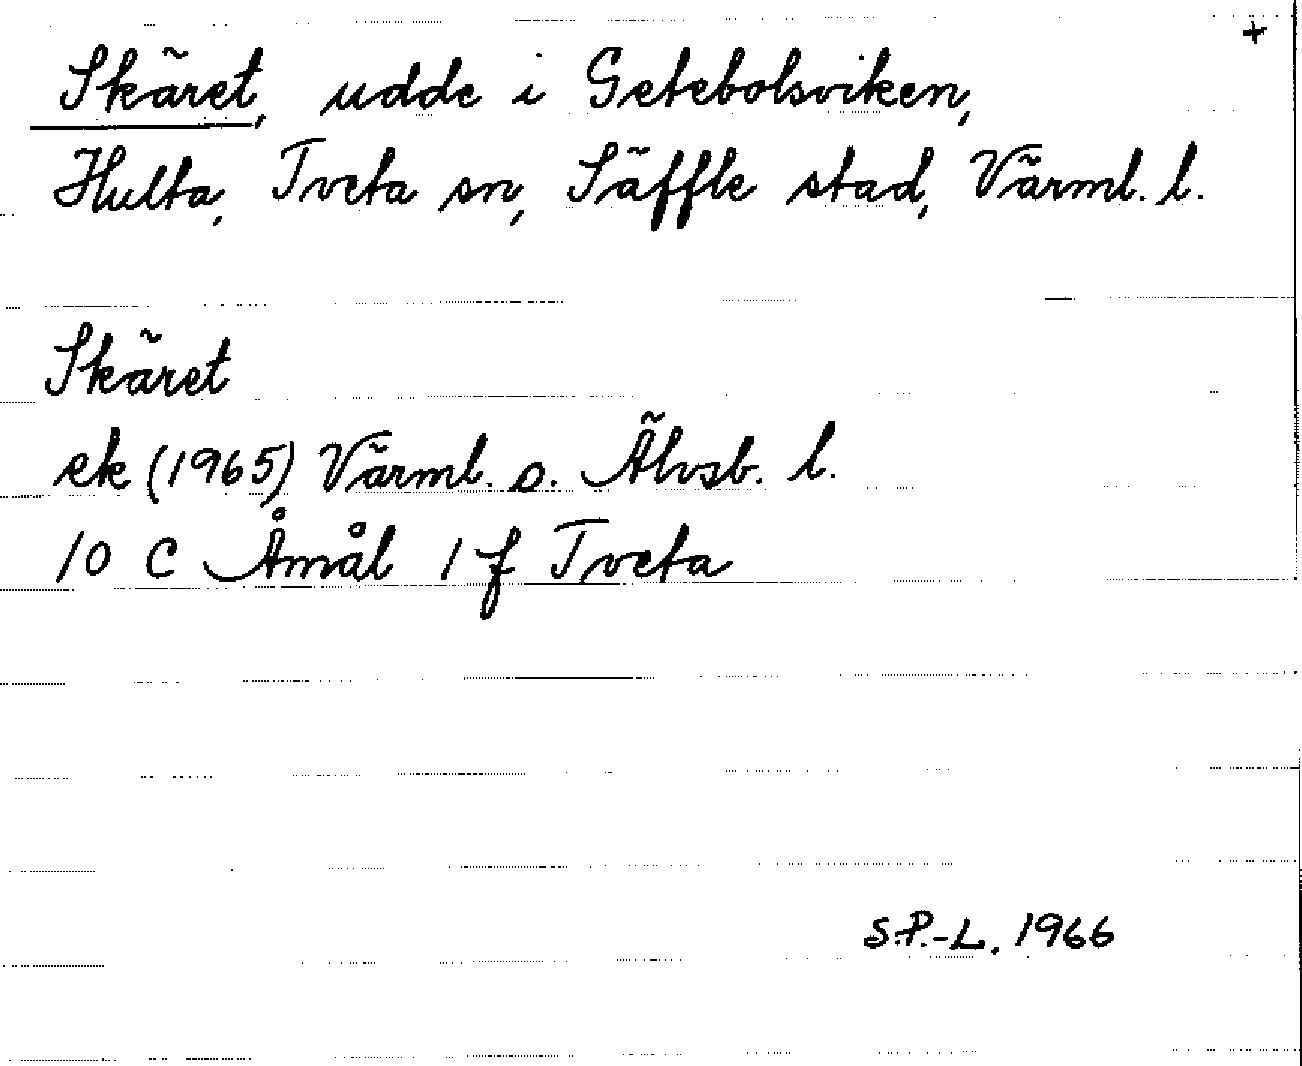 +
Skäret, udde i Getebolsviken,
Hulta, Tveta sn, Säffle stad, Värml. l.
Skäret
ek (1965) Värml. o. Älvsb. l.
10 C Åmål 1 f Tveta
S.P.-L. 1966